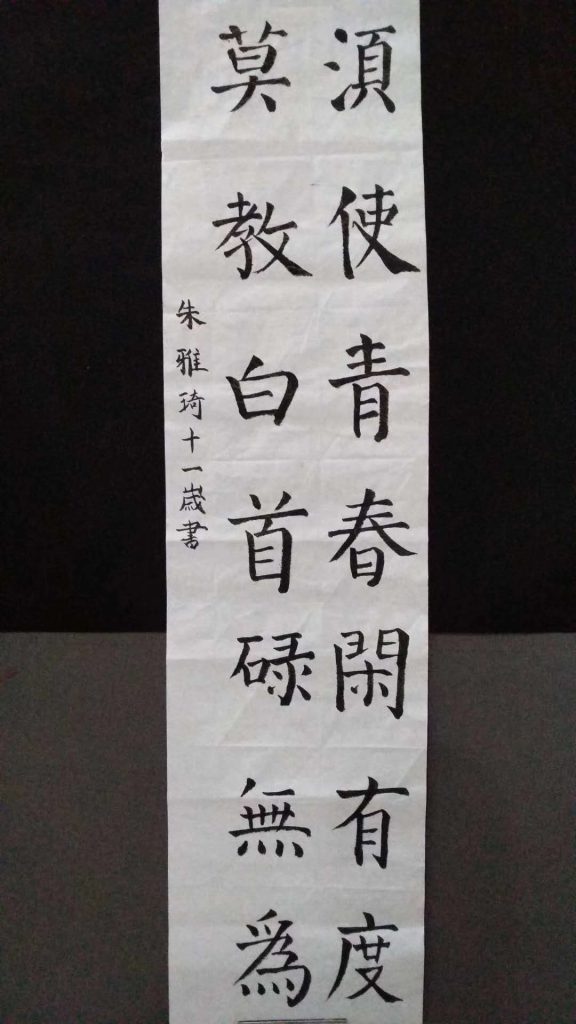 須使青春閑有度
莫教白首碌無為
朱雅琦十一歲書